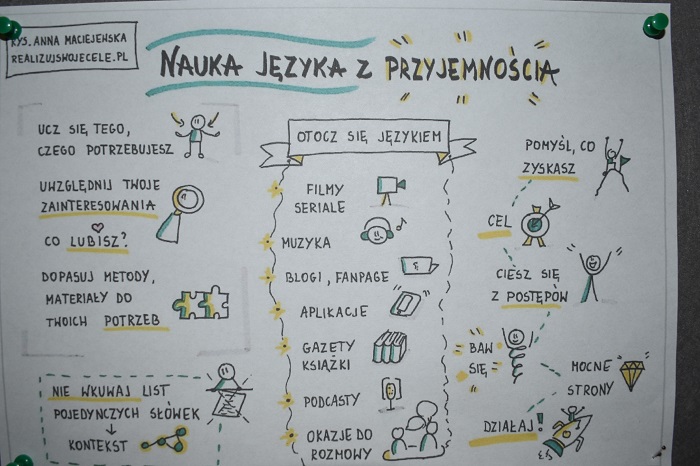 RYS. ANNA MACIEJEWSKA
REALIZUJSWOJECELE.PL
NAUKA JĘZYKA Z PRZYJEMNOŚCIĄ
UCZ SIĘ TEGO,
CZEGO POTRZEBUJESZ
UWZGLĘDNIJ TWOJE
ZAINTERESOWANIA
CO LUBISZ?
DOPASUJ METODY,
MATERIAŁY DO
TWOICH POTRZEB
NIE WKUWAJ LIST
POJEDYNCZYCH SŁÓWEK
KONTEKST
OTOCZ SIĘ JĘZYKIEM
FILMY
SERIALE
MUZYKA
BLOGI, FANPAGE
APLIKACJE
GAZETY
KSIĄŻKI
PODCASTY
OKAZJE DO
ROZMOWY
POMYŚL, CO
ZYSKASZ
CEL
CIESZ SIĘ
Z POSTĘPÓW
BAW
SIĘ
MOCNE
STRONY
DZIAŁAJ!